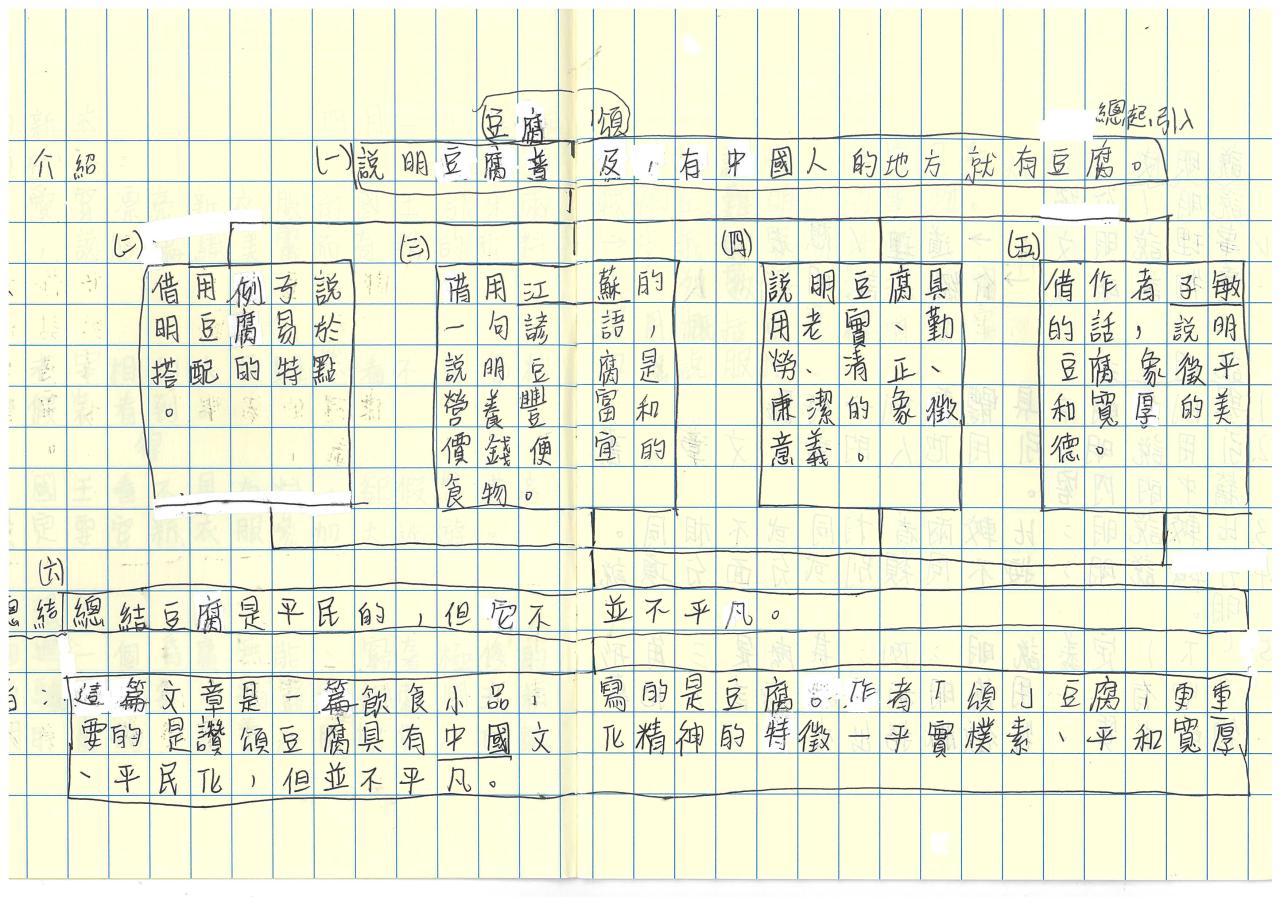 豆腐頌
總起引入
介紹
(一)說明豆腐普及，有中國人的地方就有豆腐。
(二)
借用例子說
明豆腐易於
搭配的特點
。
(三)
借用江蘇的
一句諺語，
說明豆腐是
營養豐富和
價錢便宜的
食物。
(四)
說明豆腐具
用老實、勤
勞、清正、
廉潔的象徵
意義。
(五)
借作者子敏
的話，說明
豆腐象徵平
和寬厚的美
德。
(六)
總結 總結豆腐是平民的，但它不並不平凡。
：這篇文章是一篇飲食小品，寫的是豆腐。作者「頌」豆腐，更重
要的是讚頌豆腐具有中國文化精神的特徵—平實樸素、平和寬厚
、平民化，但並不平凡。